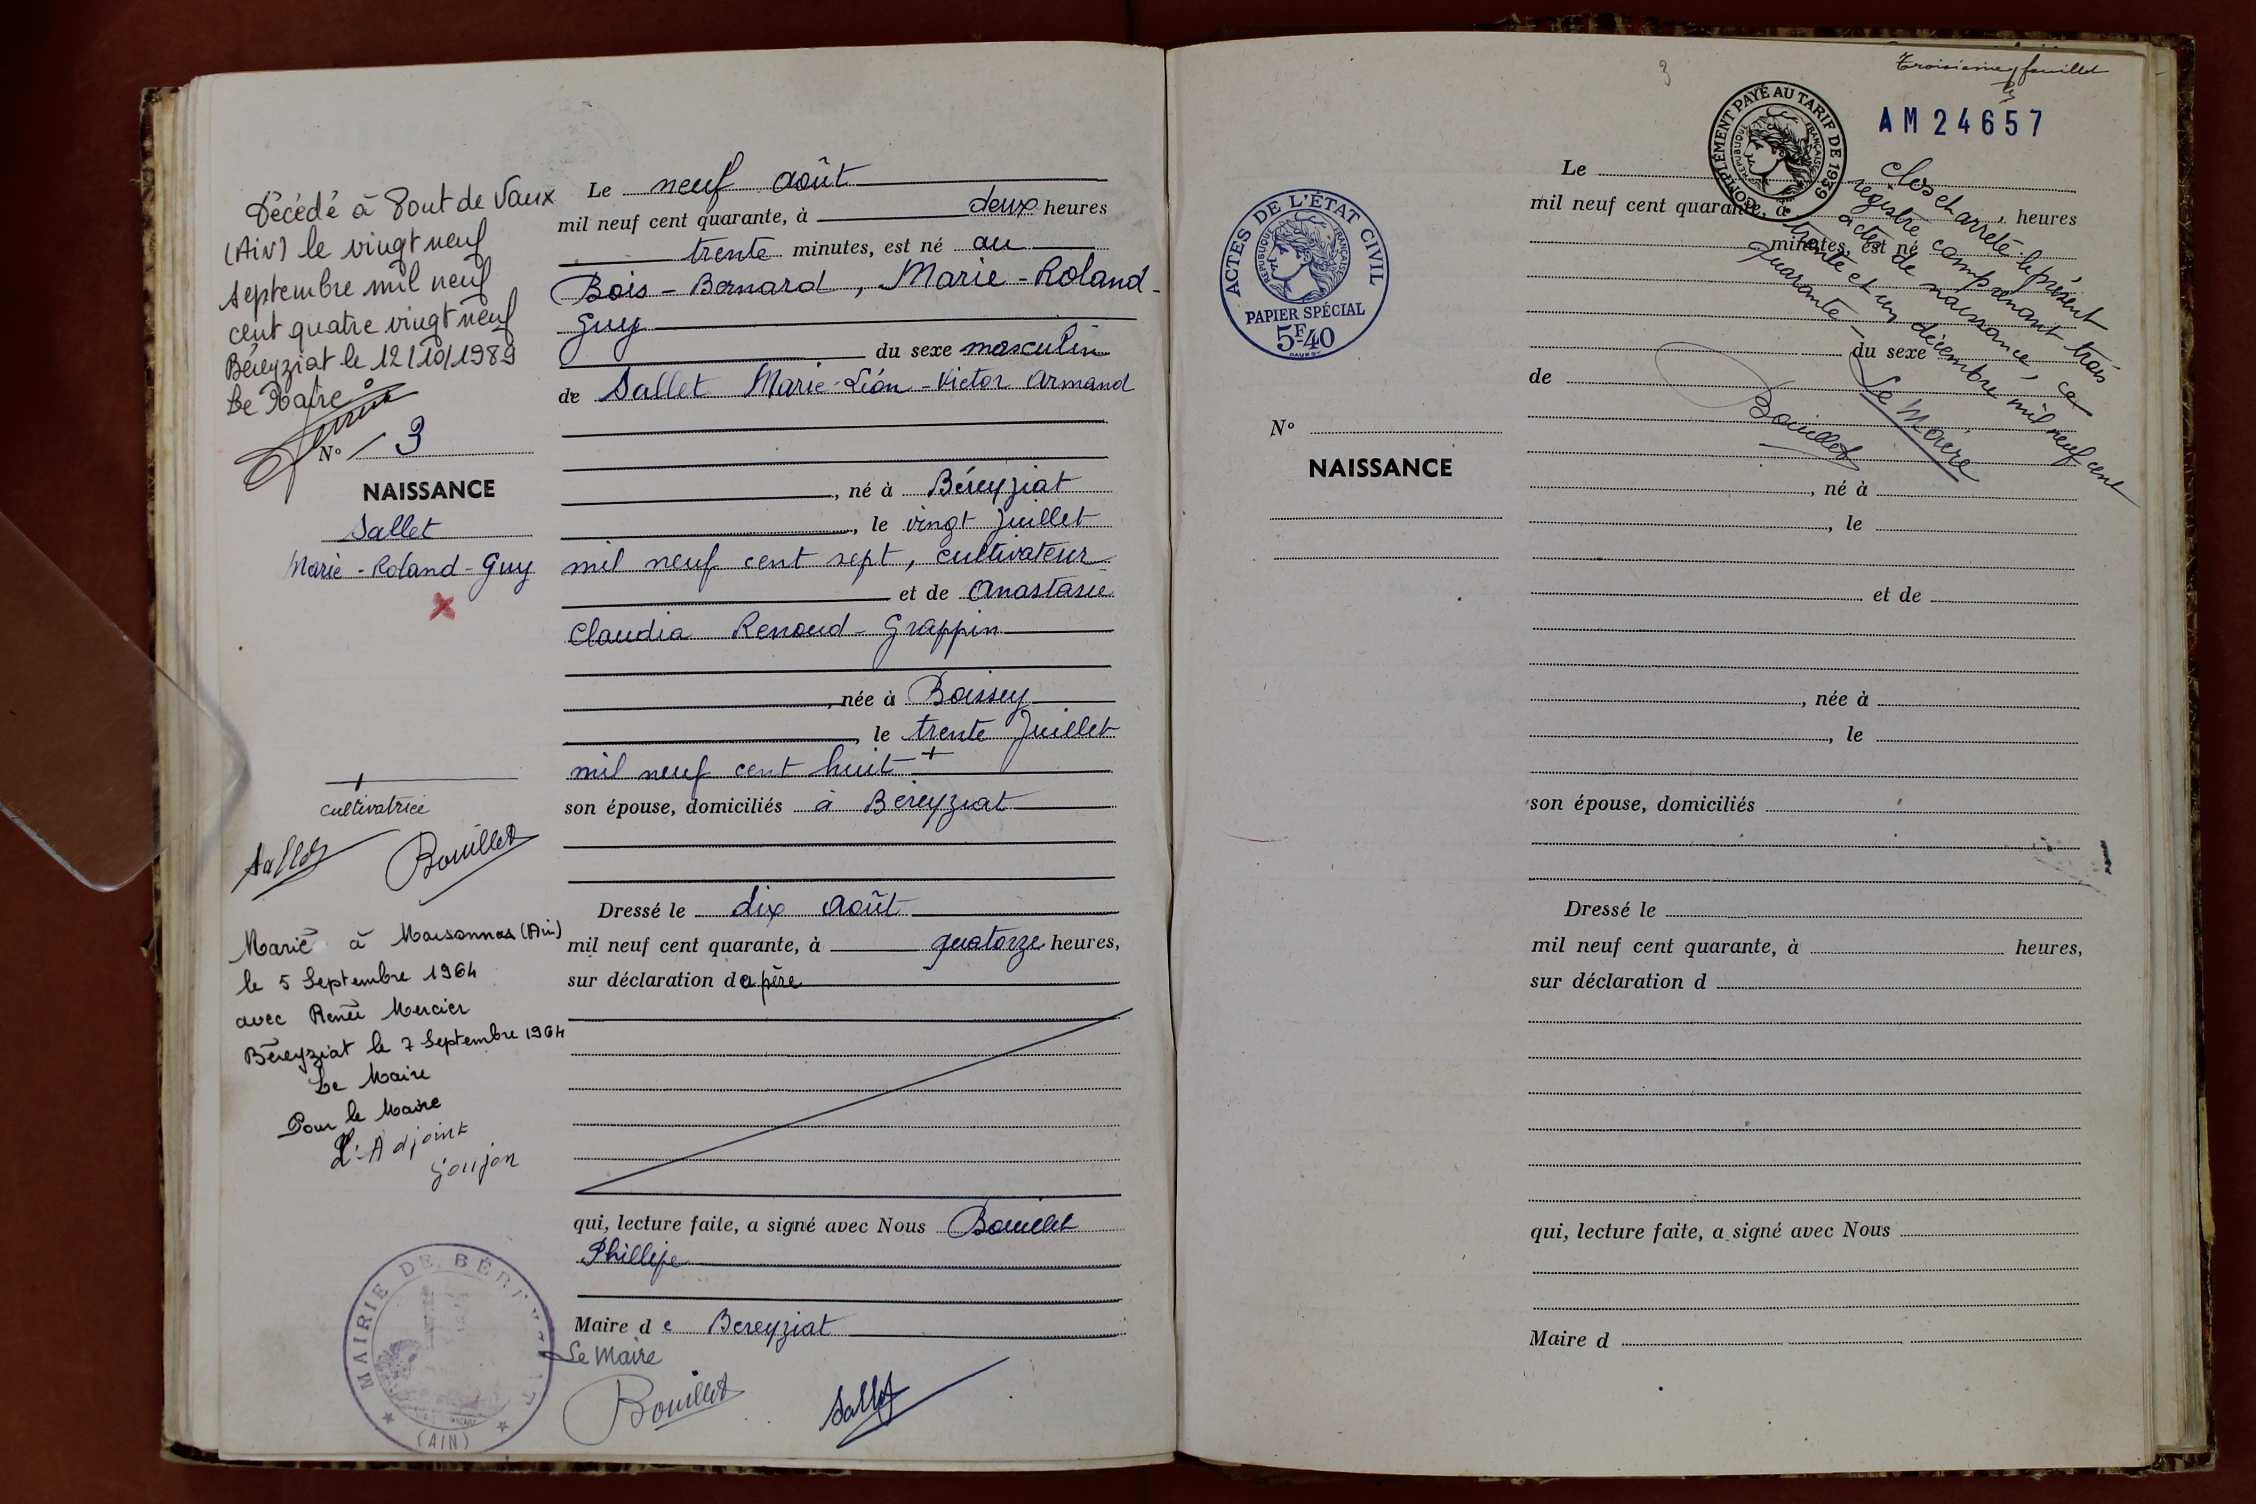 Décédé à Pont de Vaux
(Ain) le vingt neuf
septembre mil neuf
cent quatre vingt neuf
Béreyziat le 12/10/1989
Le Maire
N° 3
NAISSANCE
Sallet
Marie-Roland-Guy
+
cultivatrice
Sallet Bouillet
Marié à Marsonnas (Ain)
le 5 Septembre 1964
avec Renée Mercier
Béreyziat le 7 Septembre 1964
Le Maire
Pour le Maire
L'Adjoint
Goujon
MAIRIE DE BÉREYZIAT
(AIN)
Le neuf août
mil neuf cent quarante, à deux heures
trente minutes, est né au
Bois-Bernard, Marie-Roland-
Guy
du sexe masculin
de Sallet Marie-Léon-Victor Armand
, né à Béreyziat
, le vingt Juillet
mil neuf cent sept, cultivateur
et de Anastasie
Claudia Renoud-Grappin
, née à Boissey
, le trente Juillet
mil neuf cent huit +
son épouse, domiciliés à Béreyziat
Dressé le dix août
mil neuf cent quarante, à quatorze heures,
sur déclaration du père
qui, lecture faite, a signé avec Nous Bouillet
Phillipe
Maire de Bereyziat
Le Maire
Bouillet Sallet
3
troisième feuillet
AM24657
COMPLÉMENT PAYÉ AU TARIF DE 1939
RÉPUBLIQUE FRANÇAISE
ACTES DE L'ÉTAT CIVIL
RÉPUBLIQUE FRANÇAISE
PAPIER SPÉCIAL
5F40
Clos et arrêté le présent
registre comprenant trois
actes de naissance, ce
trente et un décembre mil neuf cent
quarante -
Le Maire
Bouillet
N°
NAISSANCE
Le
mil neuf cent quarante, à heures
minutes, est né
du sexe
de
, né à
, le
et de
, née à
, le
son épouse, domiciliés
Dressé le
mil neuf cent quarante, à heures,
sur déclaration d
qui, lecture faite, a signé avec Nous
Maire d